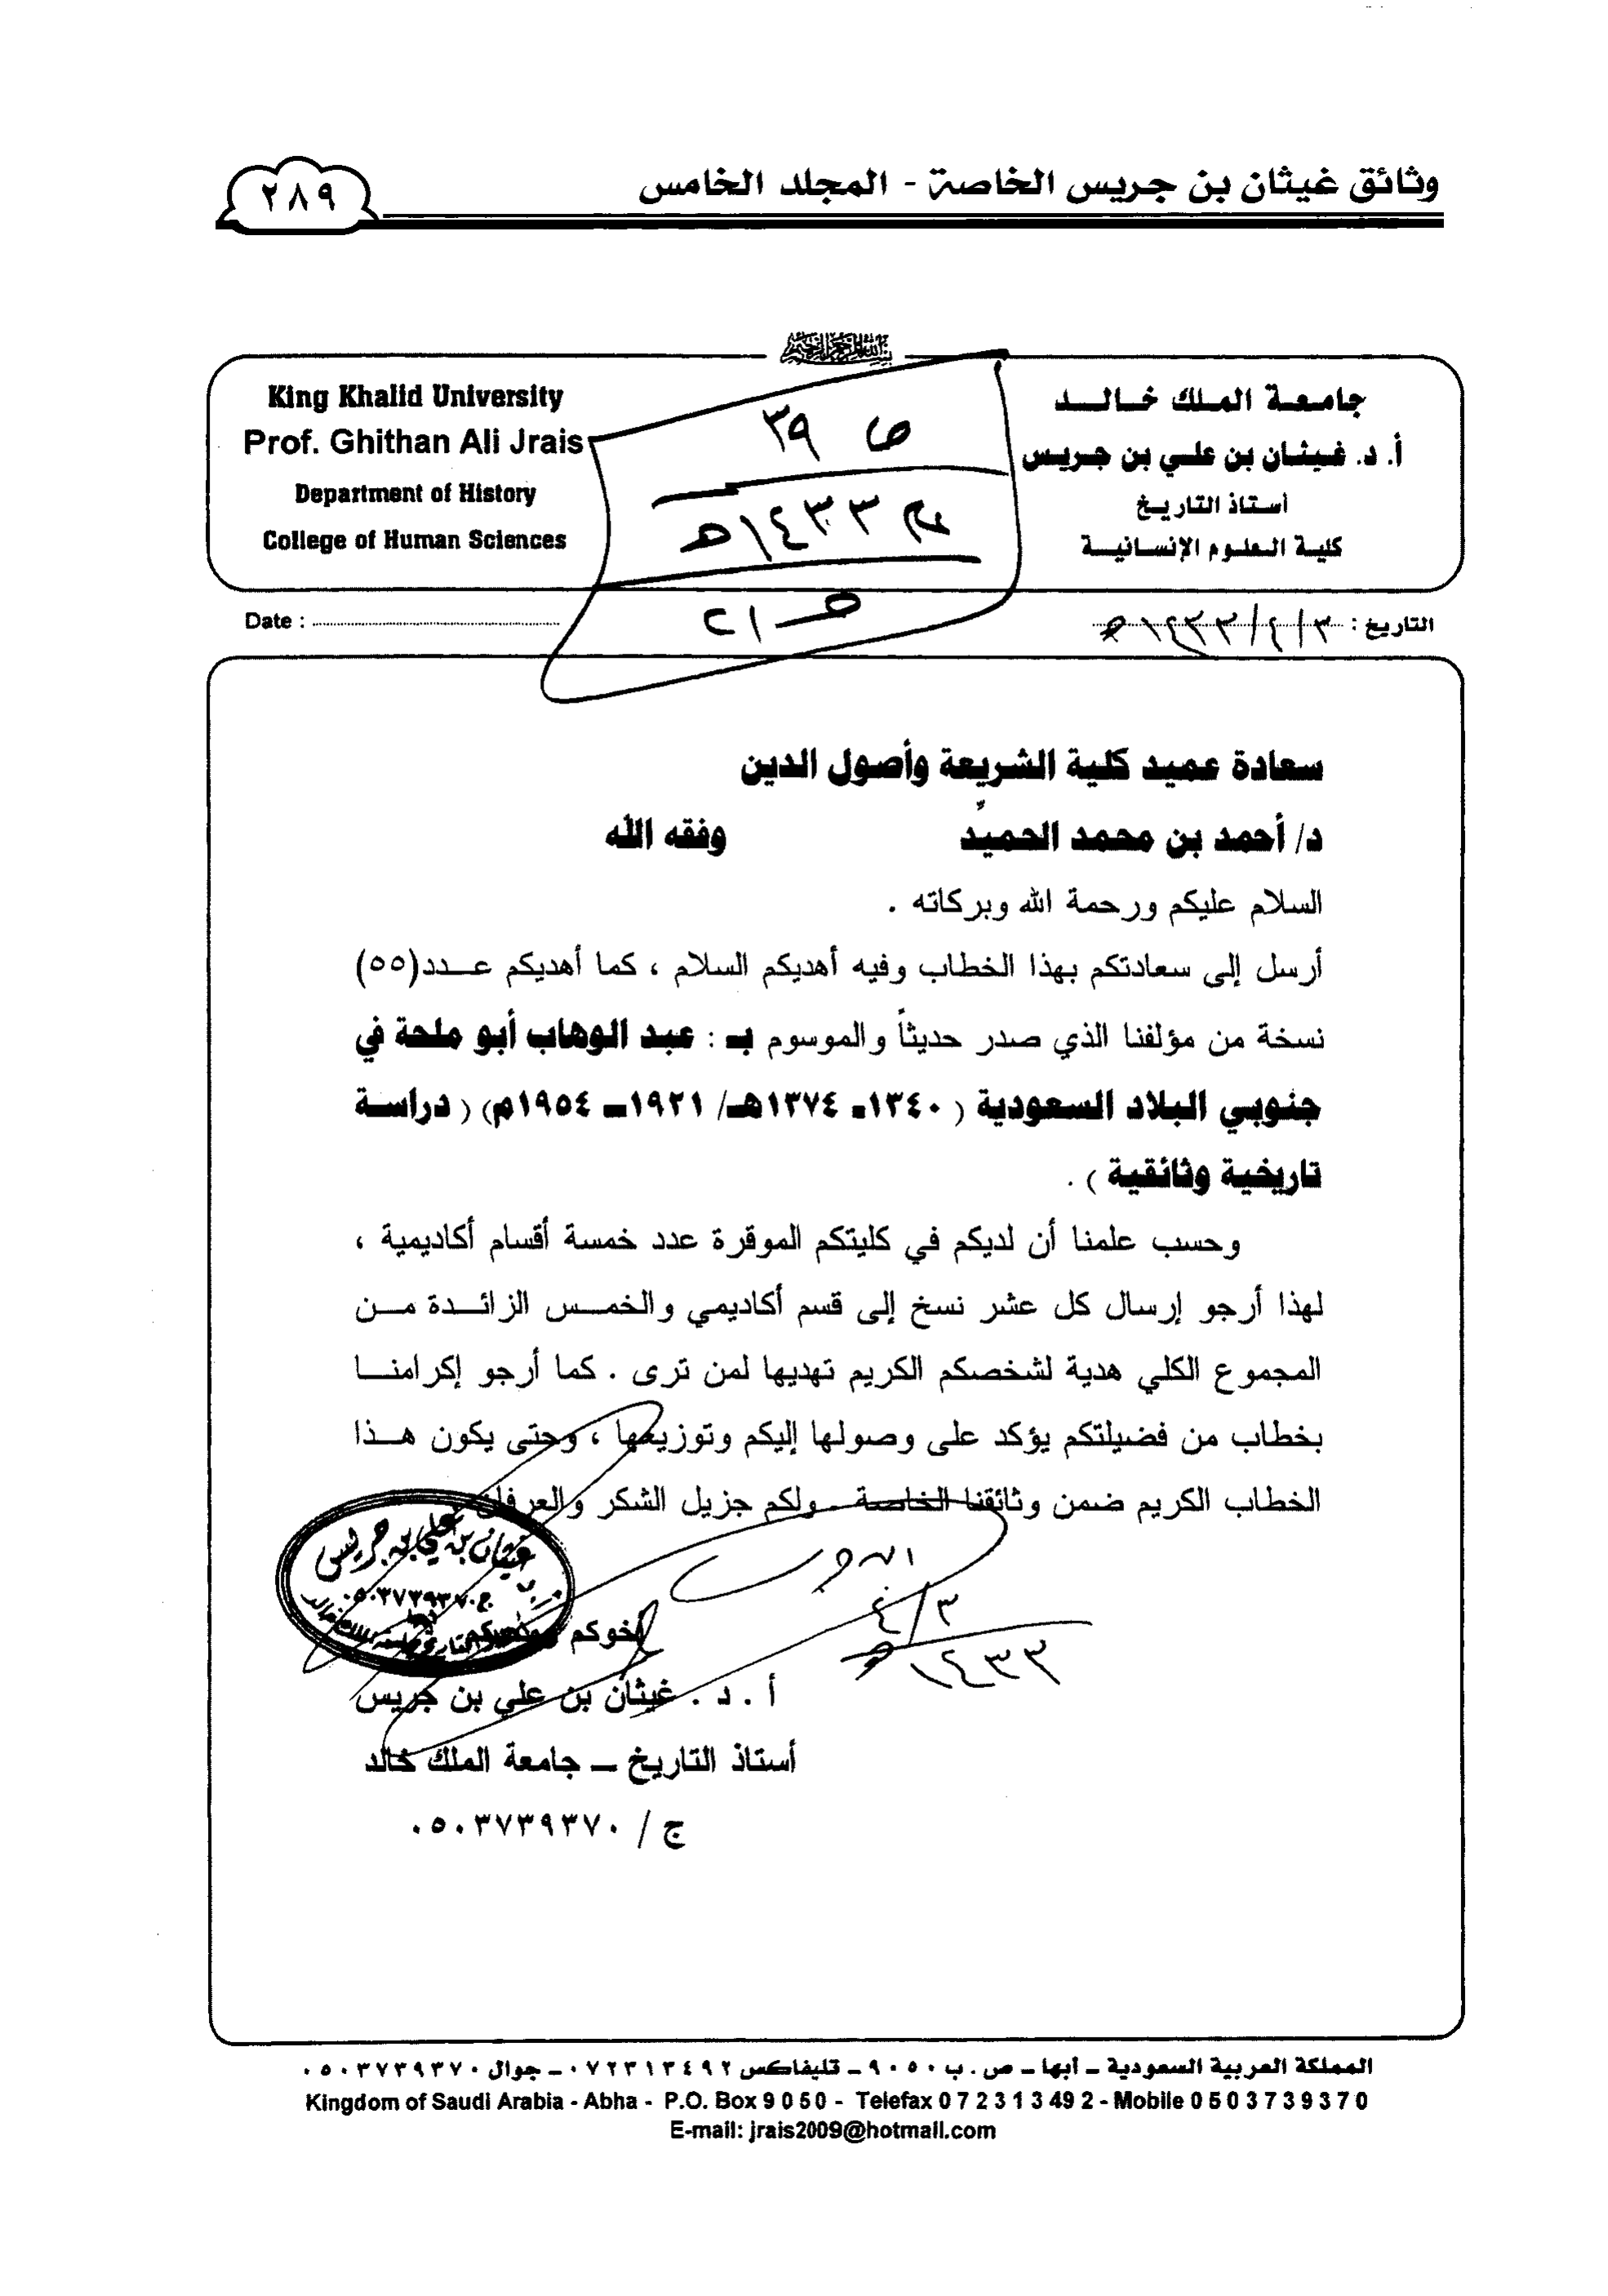 وثائق غيثان بن جريس الخاصة - المجلد الخامس
٢٨٩
جامعة الملك خالد
أ. د. غيثان بن علي بن جريس
أستاذ التاريخ
كلية العلوم الإنسانية
King Khalid University
Prof. Ghithan Ali Jrais
Department of History
College of Human Sciences
ص ٣٩
١٤٣٣هـ
التاريخ : ٣/٤/١٤٣٣هـ
Date :
سعادة عميد كلية الشريعة وأصول الدين
د/ أحمد بن محمد الحميّد وفقه الله
السلام عليكم ورحمة الله وبركاته .
أرسل إلى سعادتكم بهذا الخطاب وفيه أهديكم السلام ، كما أهديكم عدد(٥٥)
نسخة من مؤلفنا الذي صدر حديثاً والموسوم بـ : عبد الوهاب أبو ملحة في
جنوبي البلاد السعودية ( ١٣٤٠ـ ١٣٧٤هـ/ ١٩٢١ـ ١٩٥٤م) ( دراسة
تاريخية وثائقية ) .
وحسب علمنا أن لديكم في كليتكم الموقرة عدد خمسة أقسام أكاديمية ،
لهذا أرجو إرسال كل عشر نسخ إلى قسم أكاديمي والخمس الزائدة من
المجموع الكلي هدية لشخصكم الكريم تهديها لمن ترى . كما أرجو إكرامنا
بخطاب من فضيلتكم يؤكد على وصولها إليكم وتوزيعها ، وحتى يكون هذا
الخطاب الكريم ضمن وثائقنا الخاصة . ولكم جزيل الشكر والعرفان
غيثان بن علي بن جريس
ج.٠٥٠٣٧٣٩٣٧٠
٣/٤
١٤٣٣هـ
أخوكم
أ . د . غيثان بن علي بن جريس
أستاذ التاريخ ــ جامعة الملك خالد
ج / ٠٥٠٣٧٣٩٣٧٠
المملكة العربية السعودية ـ أبها ـ ص . ب ٩٠٥٠ ـ تليفاكس ٠٧٢٣١٣٤٩٢ ـ جوال ٠٥٠٣٧٣٩٣٧٠
Kingdom of Saudi Arabia - Abha - P.O. Box 9 0 5 0 - Telefax 0 7 2 3 1 3 49 2 - Mobile 0 5 0 3 7 3 9 3 7 0
E-mail: jrais2009@hotmail.com